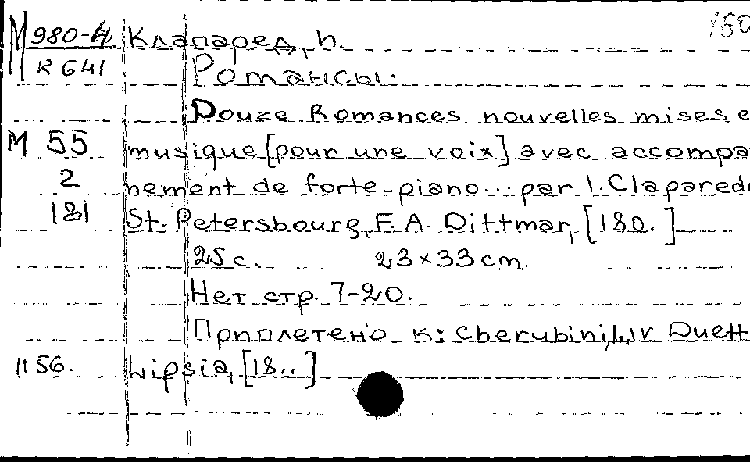 150
М 980-4 Клапаред, h.
R 641 Романсы.
Douze Romances nouvelles mises e
М 55 musique [pour une voix] avec accompa
2 nement de forte-piano... par I. Claparede
181 St. Petersbourg, F.A. Dittmar, [180. ]
25 с. 23×33 cm
Нет стр. 7-20.
Приплетено к: Cherubini, L. V Duett
1156. Lipsia, [18..]